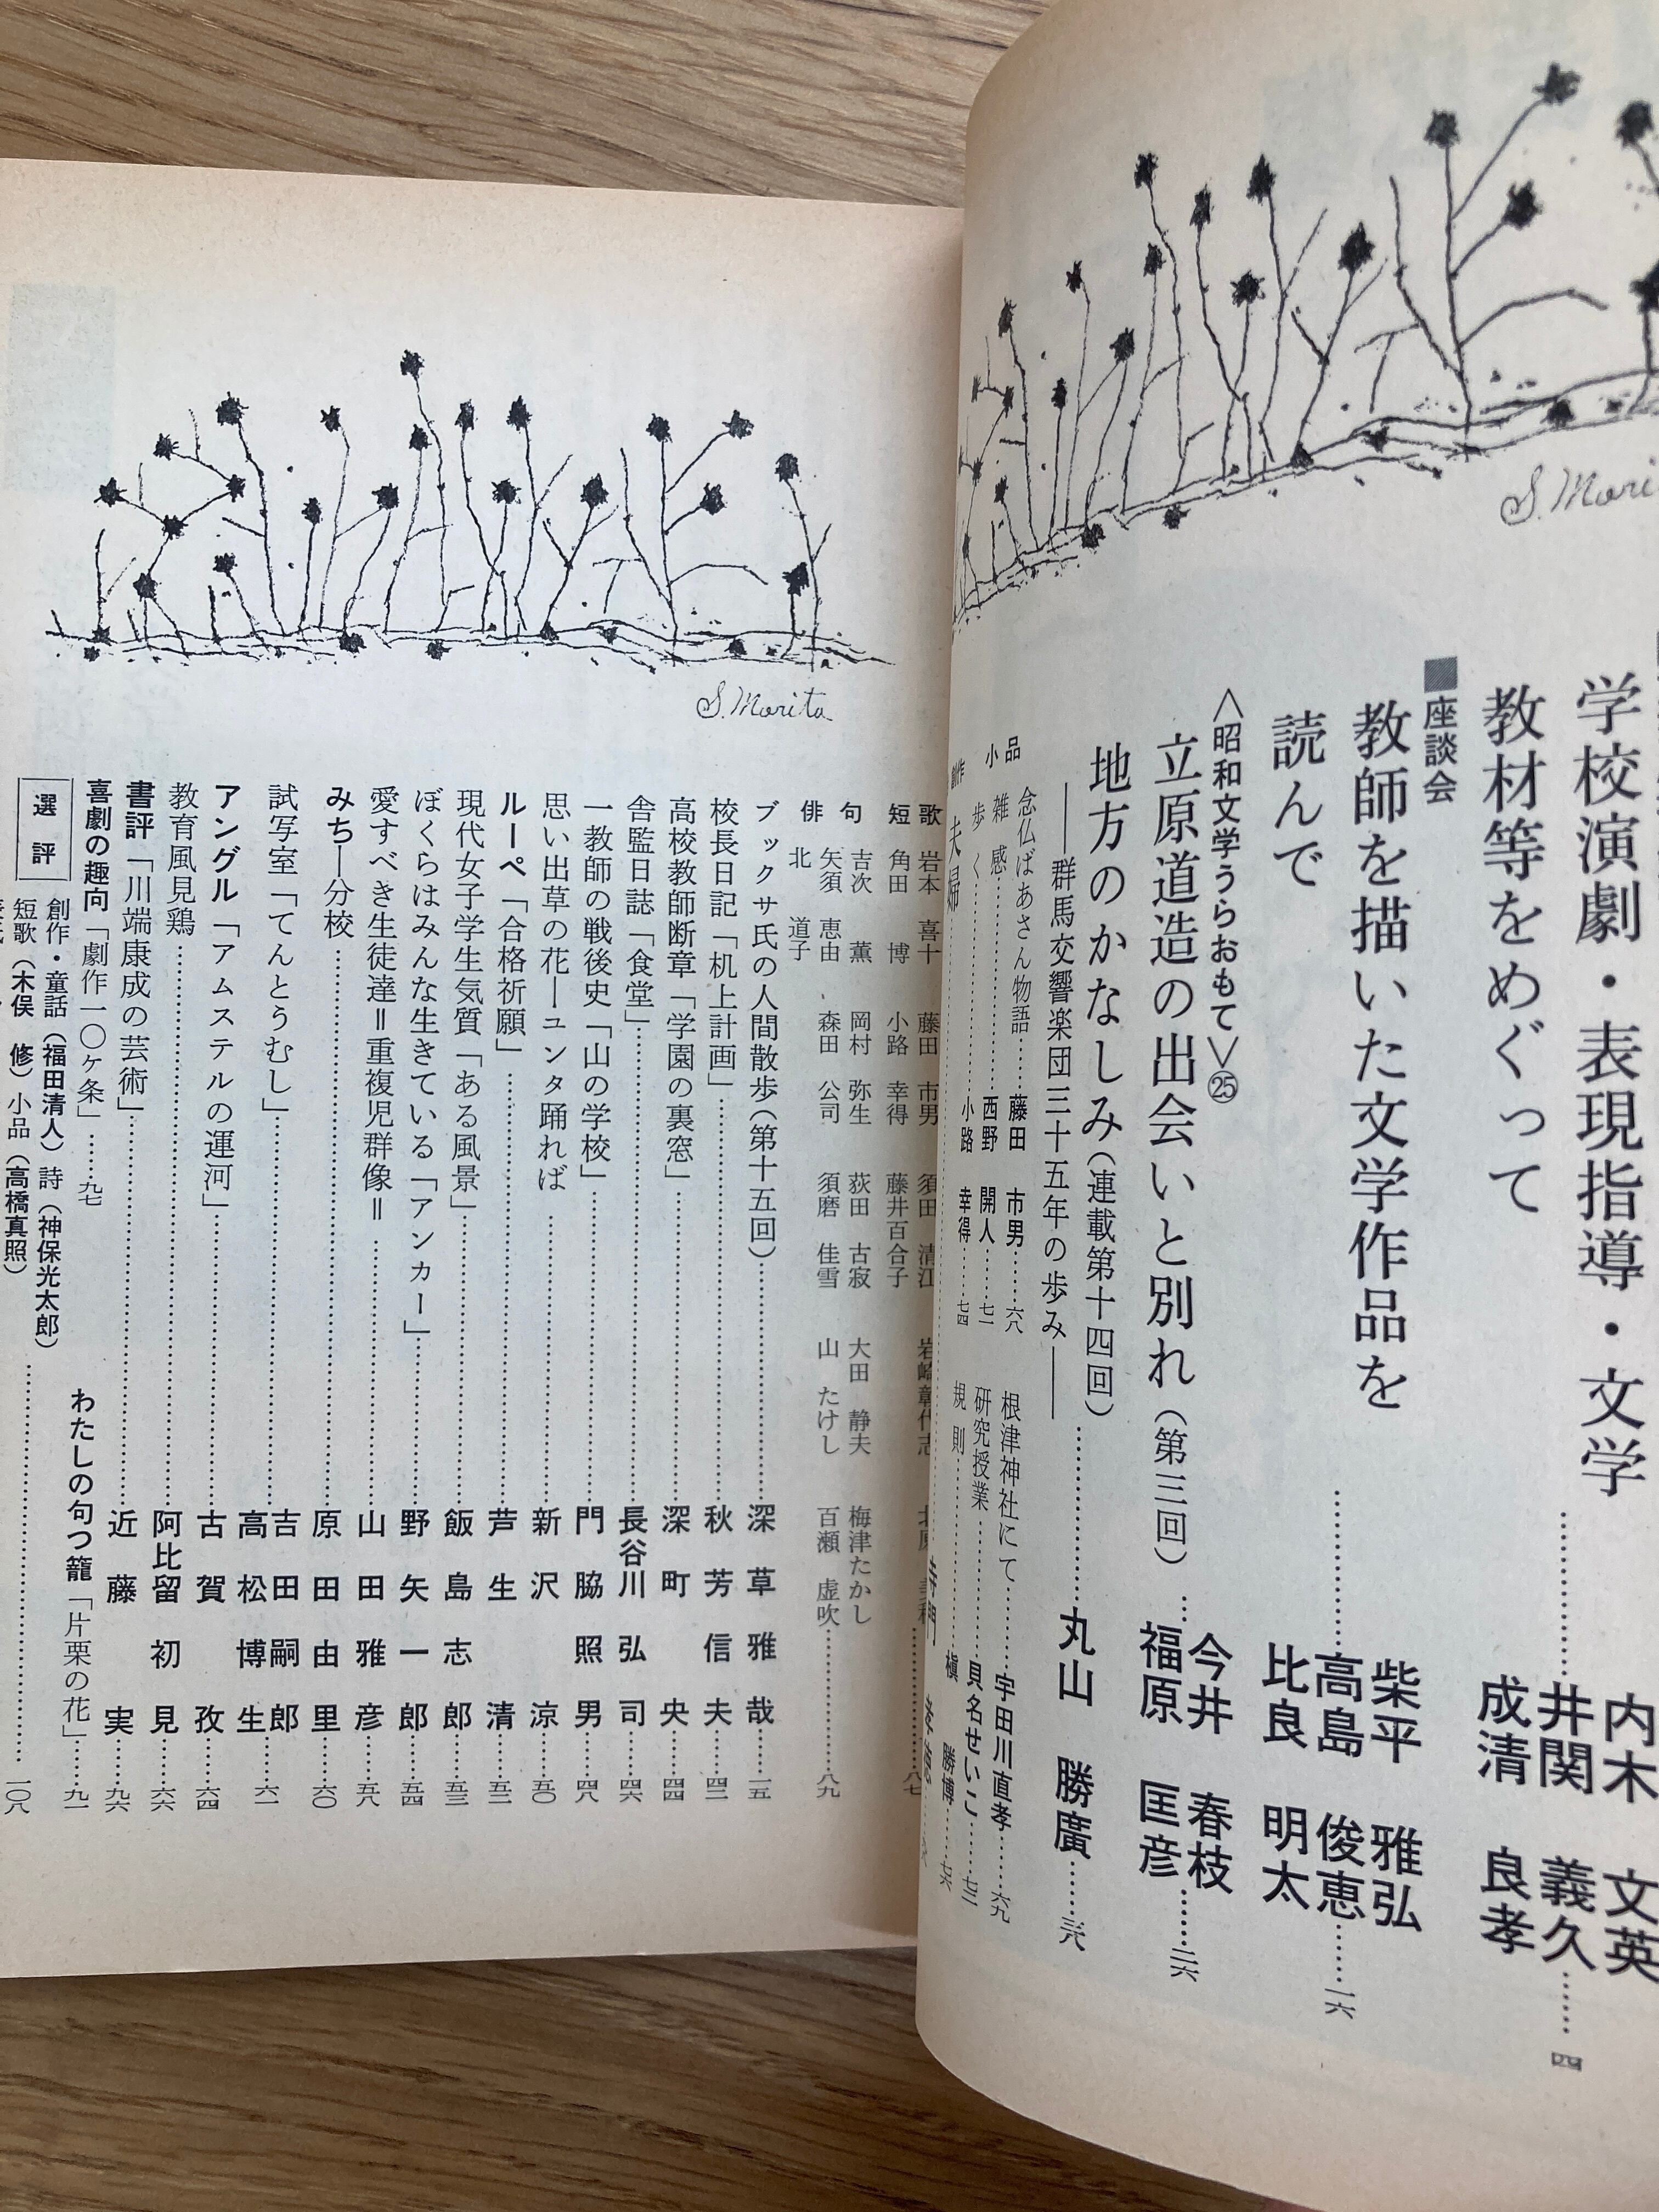 学校演劇・表現指導・文学
教材等をめぐって
内木 文英
井関 義久
成清 良孝……四
■座談会
教師を描いた文学作品を
読んで
柴平 雅弘
高島 俊恵
比良 明太……一六
〈昭和文学うらおもて〉㉕
立原道造の出会いと別れ（第三回）
今井 春枝
福原 匡彦……二六
地方のかなしみ（連載第十四回）……丸山 勝廣……三八
――群馬交響楽団三十五年の歩み――
小品
念仏ばあさん物語……藤田 市男……六八
雑感……西野 開人……七一
歩く……小路 幸得……七四
根津神社にて……宇田川直孝……六九
研究授業……貝名せいこ……七三
規則……槇 勝博……七六
創作
夫婦
S. Morita
S. Morita
短歌
岩本 喜十 藤田 市男 須田 清江 岩崎彰代志
角田 博 小路 幸得 藤井百合子
……八七
俳句
吉次 薫 岡村 弥生 荻田 古寂 大田 静夫 梅津たかし
矢須 恵由 森田 公司 須磨 佳雪 山 たけし 百瀬 虚吹……八九
北 道子
ブックサ氏の人間散歩（第十五回）……深草雅哉……一五
校長日記「机上計画」……秋芳信夫……四二
高校教師断章「学園の裏窓」……深町央……四四
舎監日誌「食堂」……長谷川弘司……四六
一教師の戦後史「山の学校」……門脇照男……四八
思い出草の花―ユンタ踊れば……新沢涼……五〇
ルーペ「合格祈願」……芦生清……五二
現代女子学生気質「ある風景」……飯島志郎……五三
ぼくらはみんな生きている「アンカー」……野矢一郎……五四
愛すべき生徒達＝重複児群像＝……山田雅彦……五八
みち―分校……原田由里……六〇
試写室「てんとうむし」……吉田嗣郎
高松博生……六二
アングル「アムステルの運河」……古賀孜……六四
教育風見鶏……阿比留初見……六六
書評「川端康成の芸術」……近藤実……九六
喜劇の趣向「劇作一〇ヶ条」……九七
わたしの句つ籠「片栗の花」……九一
選評
創作・童話（福田清人）詩（神保光太郎）
短歌（木俣 修）小品（高橋真照）
……一〇八